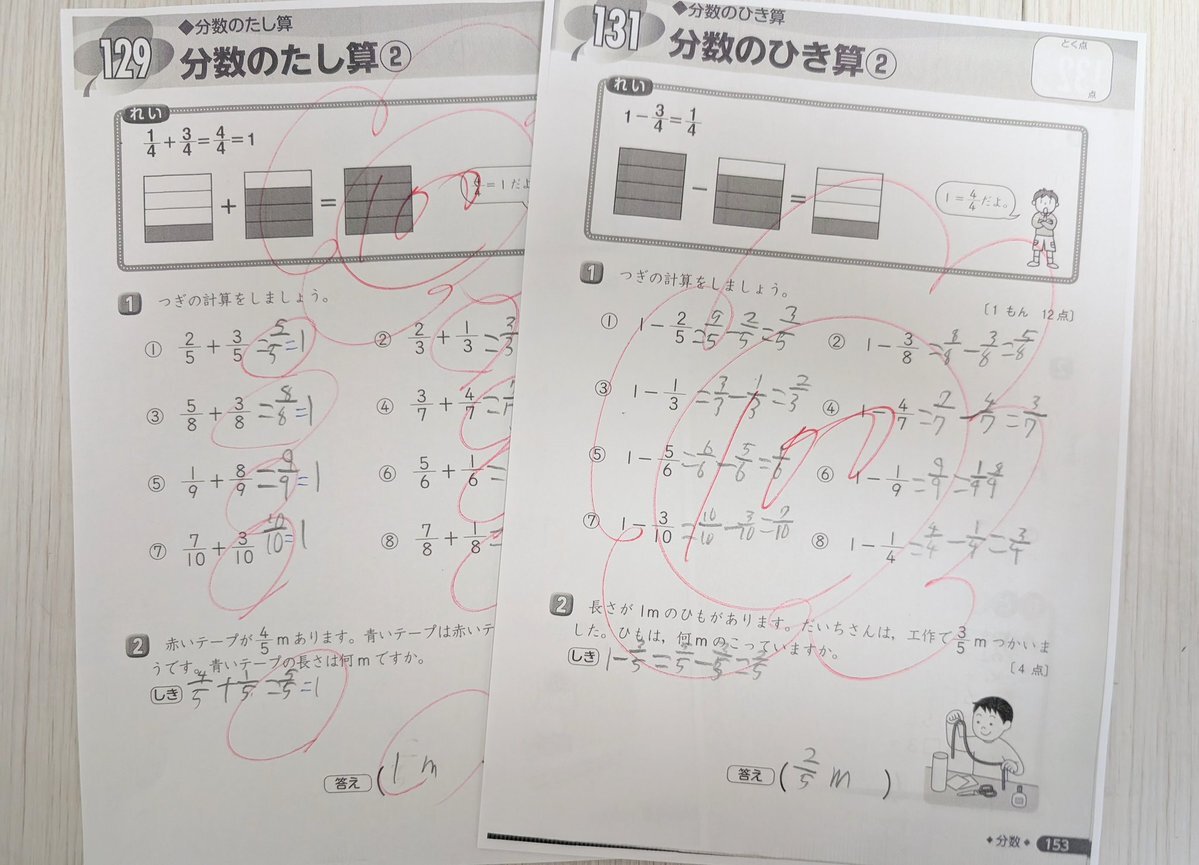 129
◆分数のたし算
分数のたし算②
れい
1/4+3/4=4/4=1
+ =
4/4=1だよ
100
1 つぎの計算をしましょう。
① 2/5+3/5=5/5=1
② 2/3+1/3=3/3
③ 5/8+3/8=8/8=1
④ 3/7+4/7=
⑤ 1/9+8/9=9/9=1
⑥ 5/6+1/6=
⑦ 7/10+3/10=10/10=1
⑧ 7/8+1/8=
2 赤いテープが4/5mあります。青いテープは赤いテ
うです。青いテープの長さは何mですか。
しき 4/5+1/5=5/5=1
答え (1m
131
◆分数のひき算
分数のひき算②
とく点
点
れい
1-3/4=1/4
- =
1=4/4だよ。
100
1 つぎの計算をしましょう。
〔1もん 12点〕
① 1-2/5=5/5-2/5=3/5
② 1-3/8=8/8-3/8=5/8
③ 1-1/3=3/3-1/3=2/3
④ 1-4/7=7/7-4/7=3/7
⑤ 1-5/6=6/6-5/6=1/6
⑥ 1-1/9=9/9=1/9 8/9
⑦ 1-3/10=10/10-3/10=7/10
⑧ 1-1/4=4/4-1/4=3/4
2 長さが1mのひもがあります。だいちさんは，工作で3/5mつかいま
した。ひもは，何mのこっていますか。
〔4点〕
しき 1-3/5=5/5-3/5=2/5
答え (2/5 m)
◆分数◆ 153